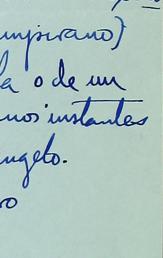 umpirano)
la o de un
nos instantes
ngelo.
ro